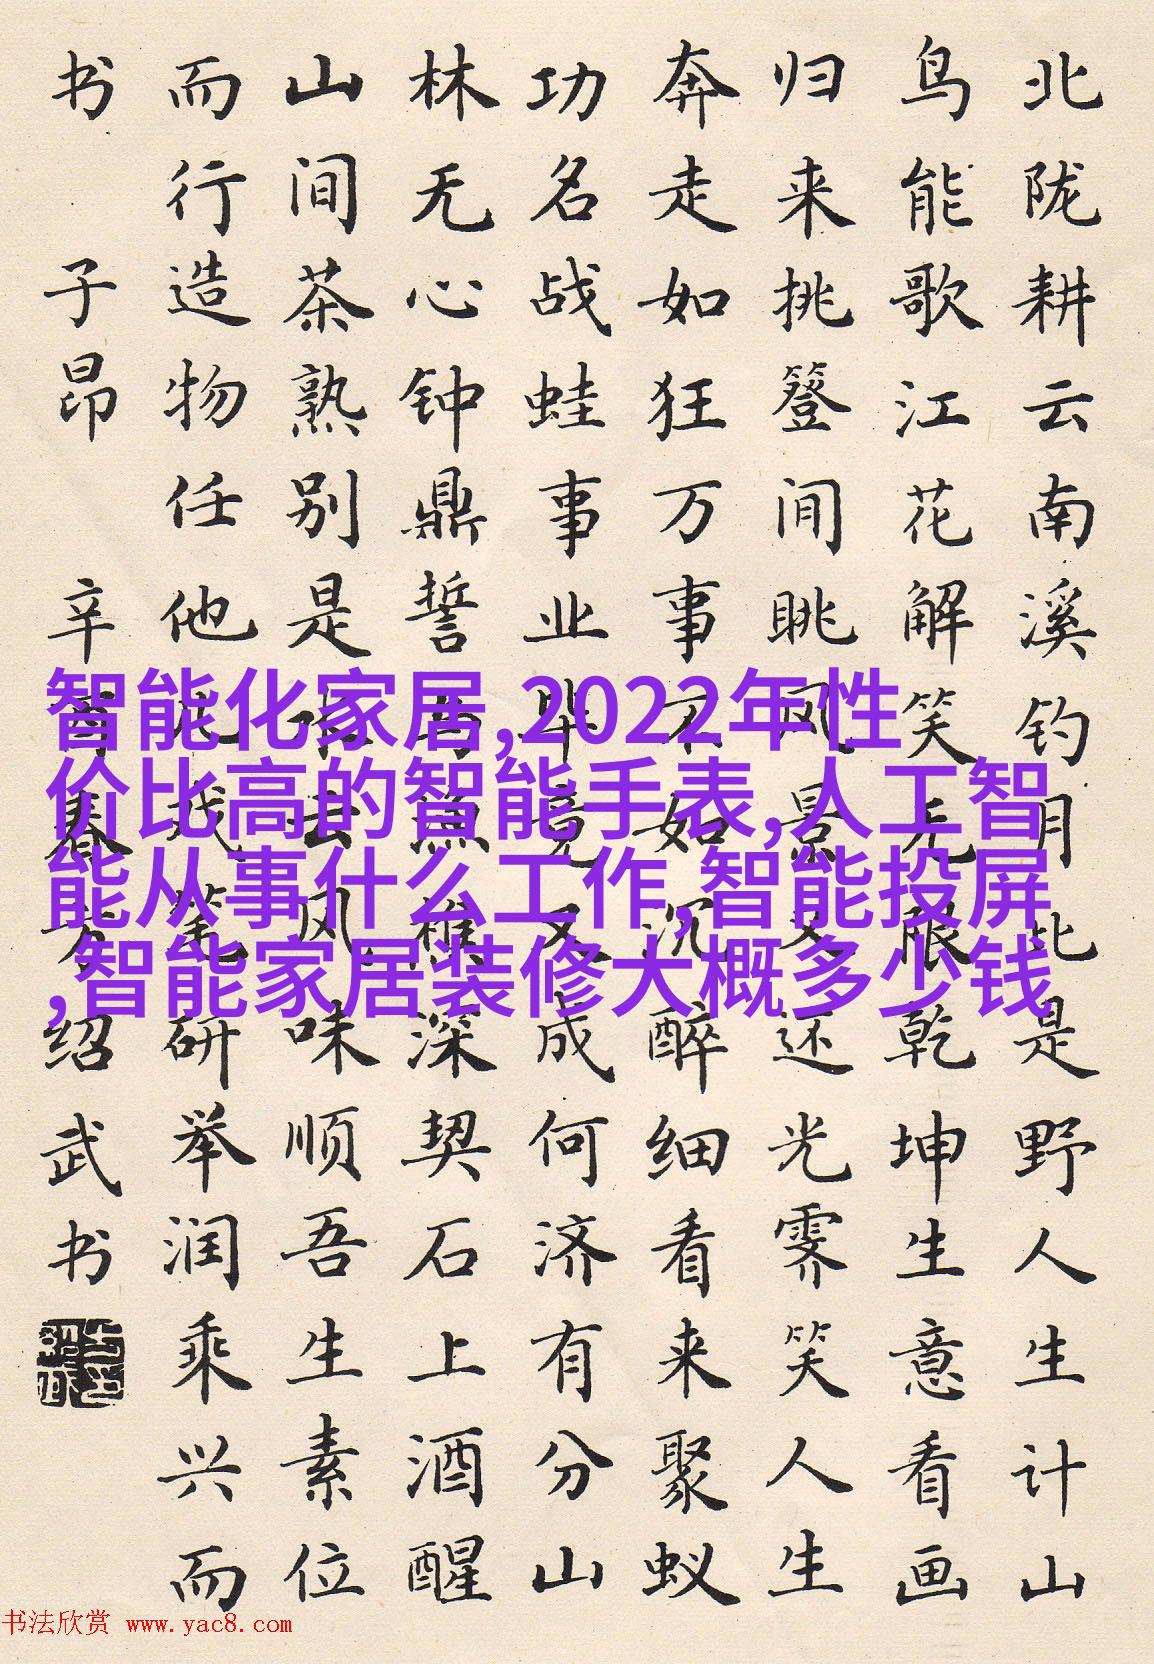 北陇耕云南溪钓月此是野人生计山
鸟能歌江花解笑无限乾坤生意看画
归来挑簦间眺风景又还光霁笑人生
奔走如狂万事不如沉醉细看来聚蚁
功名战蛙事业毕竟又成何济有分山
林无心钟鼎誓与渔樵深契石上酒醒
山间茶熟别是水云风味顺吾生素位
而行造物任他儿戏笔研举润乘兴而
书 子昂 辛酉春方绍武书
智能化家居,2022年性
价比高的智能手表,人工智
能从事什么工作,智能投屏
,智能家居装修大概多少钱
书法欣赏 www.yac8.com